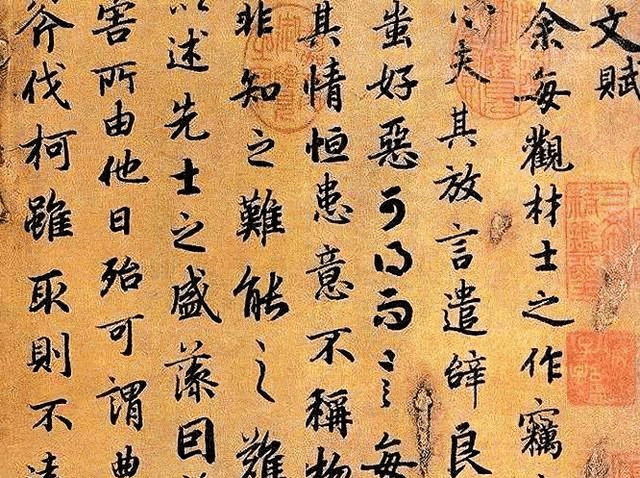 文賦
余每觀材士之作竊
心夫其放言遣辭良
蚩好惡可得而言每
其情恒患意不稱物
非知之難能之難
以述先士之盛藻因
害所由他日殆可謂曲
斧伐柯雖取則不遠